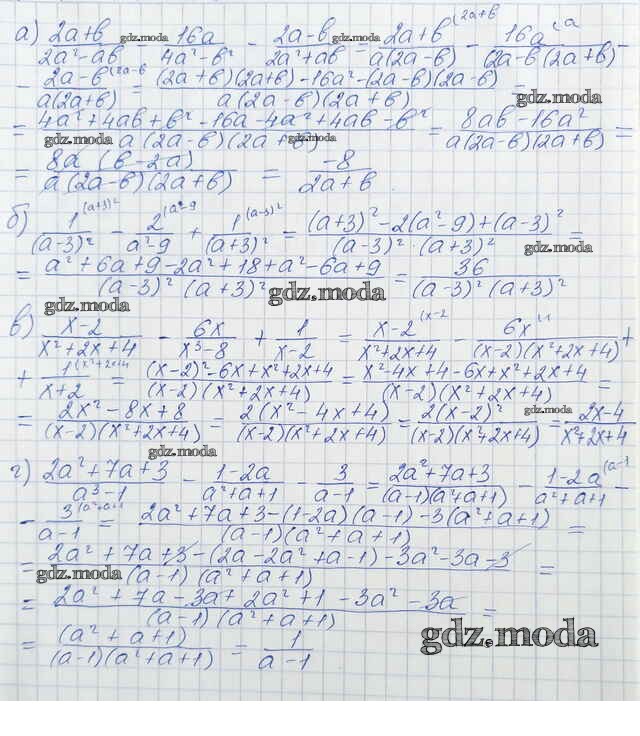 а) (2a+b)/(2a²-ab) - 16a/(4a²-b²) - (2a-b)/(2a²+ab) = (2a+b)/(a(2a-b)) (2a+b - 16a/((2a-b)(2a+b)) (a -
- (2a-b)/(a(2a+b)) (2a-b = ((2a+b)(2a+b)-16a²-(2a-b)(2a-b))/(a(2a-b)(2a+b)) =
gdz.moda
= (4a²+4ab+b²-16a-4a²+4ab-b²)/(a(2a-b)(2a+b)) = (8ab-16a²)/(a(2a-b)(2a+b)) =
gdz.moda
= (8a(b-2a))/(a(2a-b)(2a+b)) = -8/(2a+b).
б) 1/(a-3)² (a+3)² - 2/(a²-9) (a²-9 + 1/(a+3)² (a-3)² = ((a+3)²-2(a²-9)+(a-3)²)/((a-3)²·(a+3)²) =
= (a²+6a+9-2a²+18+a²-6a+9)/((a-3)²(a+3)²) = 36/((a-3)²(a+3)²)
gdz.moda
gdz.moda
в) (x-2)/(x²+2x+4) - 6x/(x³-8) + 1/(x-2) = (x-2)/(x²+2x+4) (x-2 - 6x/((x-2)(x²+2x+4)) (1 +
+ 1/(x+2) (x²+2x+4 = ((x-2)²-6x+x²+2x+4)/((x-2)(x²+2x+4)) = (x²-4x+4-6x+x²+2x+4)/((x-2)(x²+2x+4)) =
= (2x²-8x+8)/((x-2)(x²+2x+4)) = (2(x²-4x+4))/((x-2)(x²+2x+4)) = (2(x-2)²)/((x-2)(x²+2x+4)) = (2x-4)/(x²+2x+4)
gdz.moda
г) (2a²+7a+3)/(a³-1) - (1-2a)/(a²+a+1) - 3/(a-1) = (2a²+7a+3)/((a-1)(a²+a+1)) - (1-2a)/(a²+a+1) (a-1 -
- 3/(a-1) (a²+a+1 = (2a²+7a+3-(1-2a)(a-1)-3(a²+a+1))/((a-1)(a²+a+1)) =
= (2a²+7a+3-(2a-2a²+a-1)-3a²-3a-3)/((a-1)(a²+a+1)) =
gdz.moda
= (2a²+7a-3a+2a²+1-3a²-3a)/((a-1)(a²+a+1)) =
= (a²+a+1)/((a-1)(a²+a+1)) = 1/(a-1)
gdz.moda